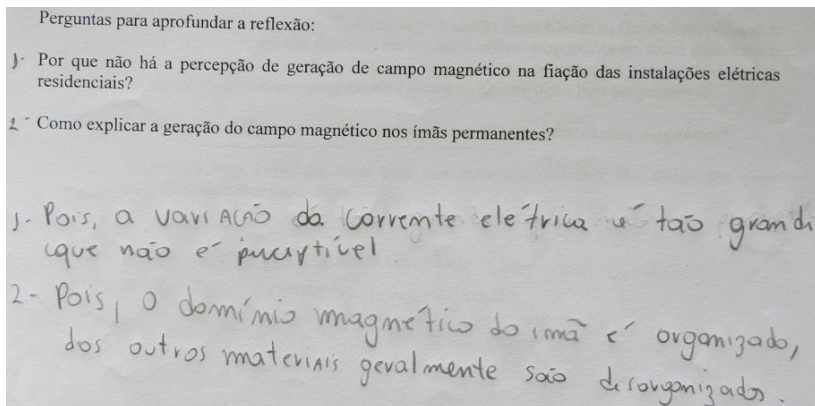 Perguntas para aprofundar a reflexão:
1- Por que não há a percepção de geração de campo magnético na fiação das instalações elétricas
residenciais?
2- Como explicar a geração do campo magnético nos ímãs permanentes?
1- Pois, a variação da corrente elétrica é tão grand
que não é
2- Pois, o domínio magnético do imã é organizado,
dos outros materiais geralmente são desorganizados.